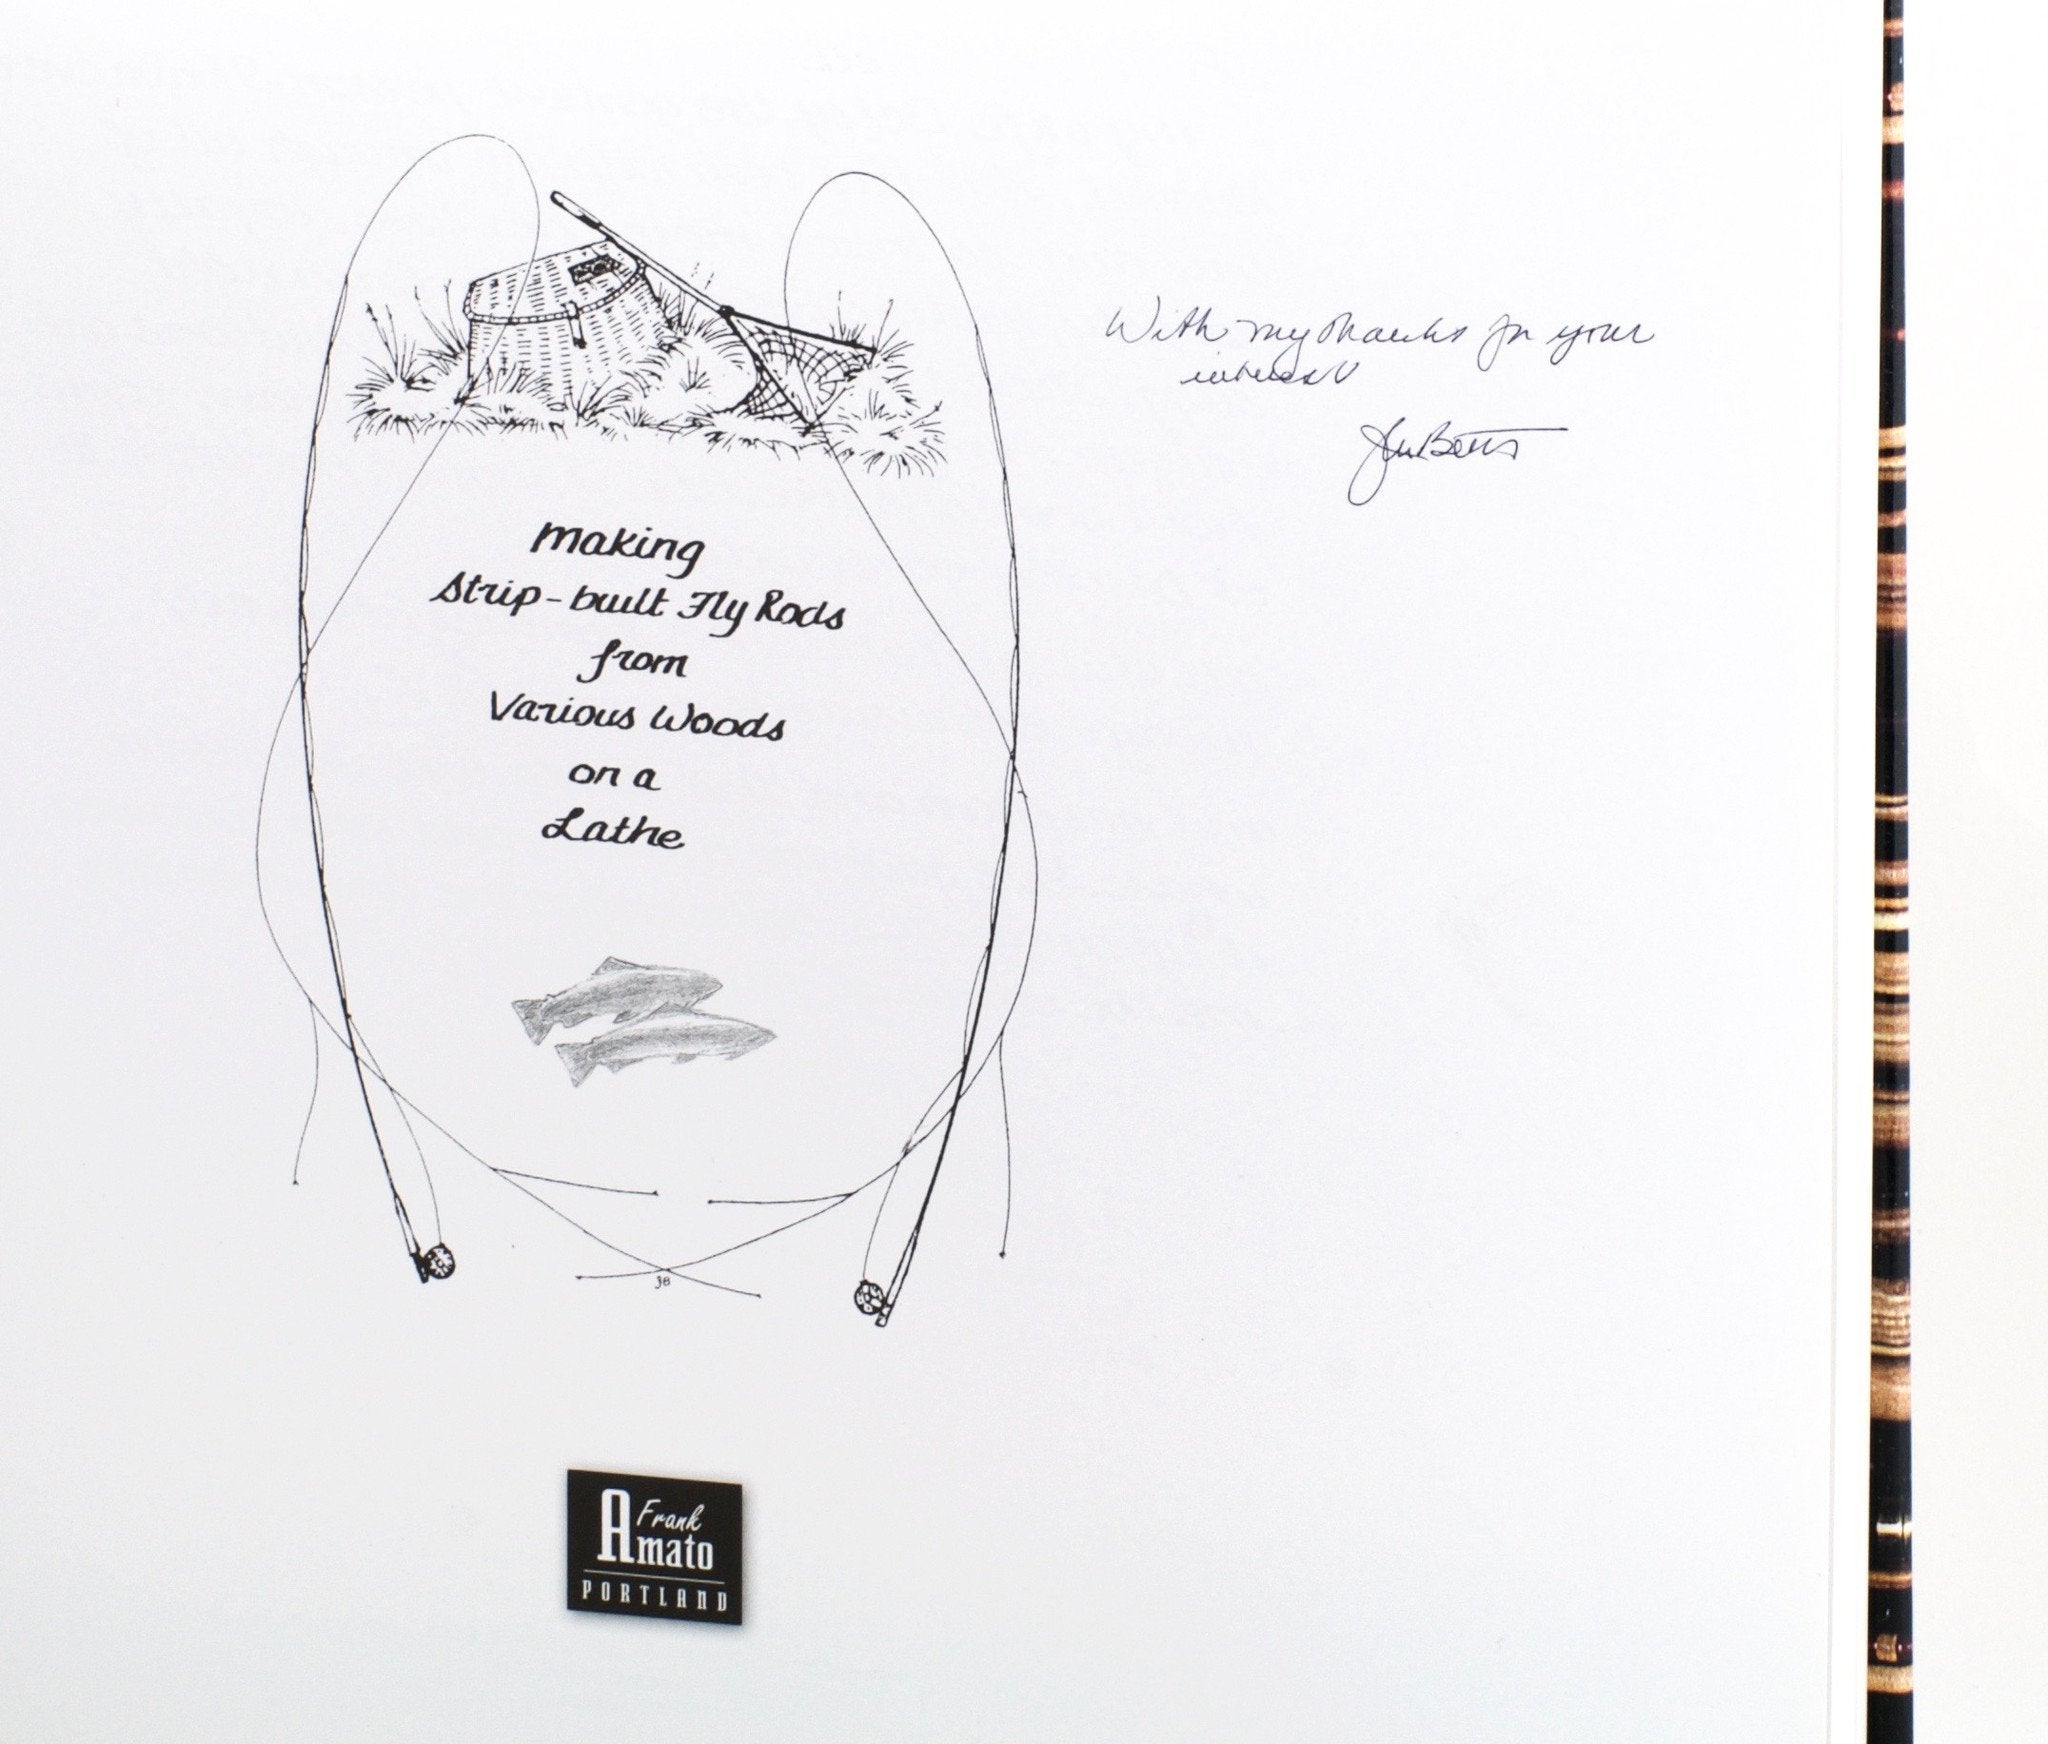 Making
Strip-built Fly Rods
from
Various Woods
on a
Lathe
JB
Frank
Amato
PORTLAND
With my thanks for your
interest
John Betts